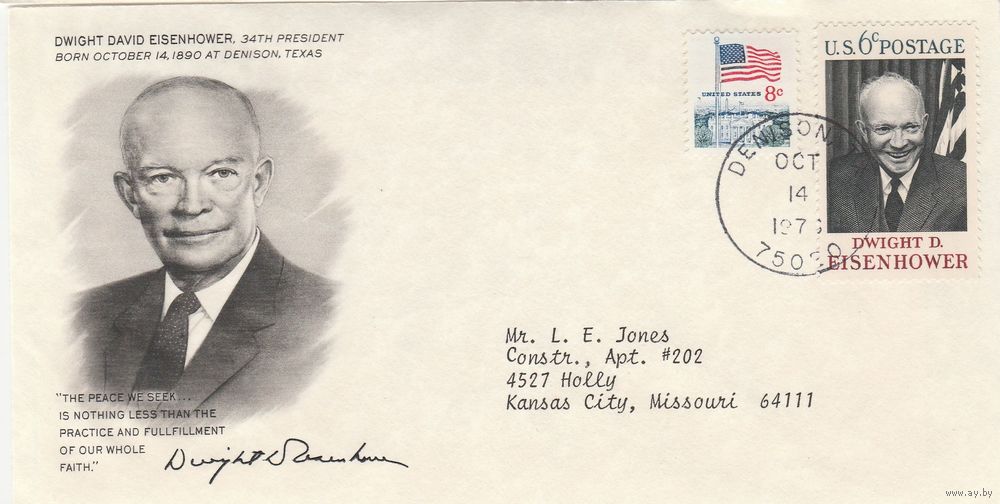 DWIGHT DAVID EISENHOWER, 34TH PRESIDENT
BORN OCTOBER 14, 1890 AT DENISON, TEXAS
"THE PEACE WE SEEK...
IS NOTHING LESS THAN THE
PRACTICE AND FULLFILLMENT
OF OUR WHOLE
FAITH."
Dwight D Eisenhower
UNITED STATES 8c
U.S. 6c POSTAGE
DWIGHT D.
EISENHOWER
DENISON
OCT
14
Mr. L. E. Jones
Constr., Apt. #202
4527 Holly
Kansas City, Missouri 64111
www.ay.by